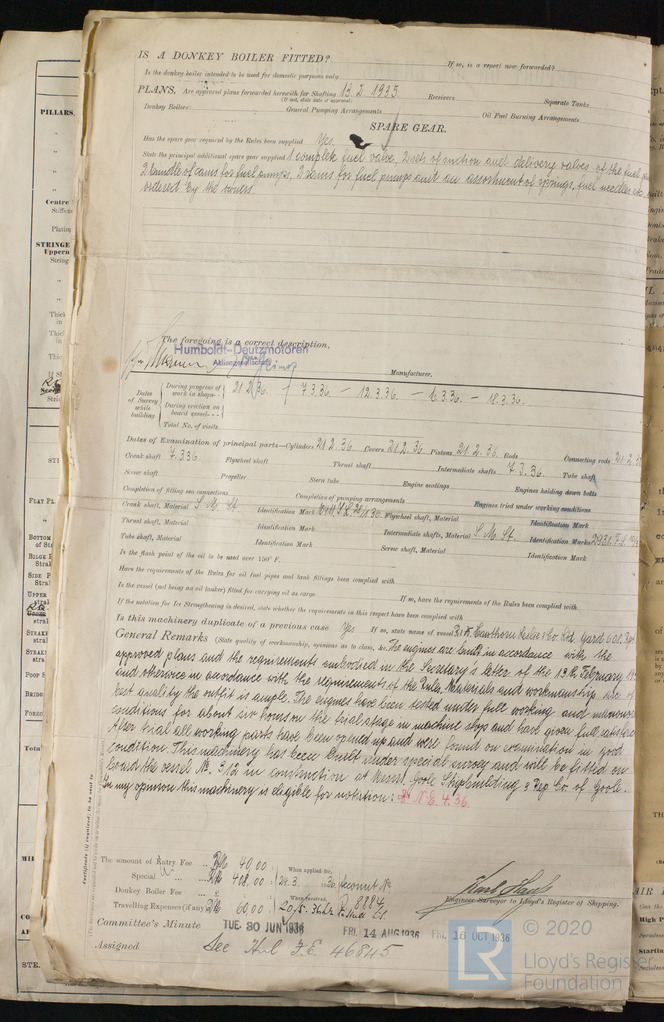 IS A DONKEY BOILER FITTED?
If so, is a report now forwarded?
Is the donkey boiler intended to be used for domestic purposes only
PLANS. Are approved plans forwarded herewith for Shafting 13.2.1935 Receivers Separate Tanks
(If not, state date of approval)
Donkey Boilers General Pumping Arrangements Oil Fuel Burning Arrangements
SPARE GEAR.
Has the spare gear required by the Rules been supplied Yes
State the principal additional spare gear supplied 1 complete fuel valve, 2 sets of suction and delivery valves of the fuel
2 bundle of cams for fuel pumps, 2 cams for fuel pumps and an assortment of springs, fuel needles etc.
ordered by the owners.
The foregoing is a correct description,
Humboldt-Deutzmotoren
Aktiengesellschaft
Manufacturer.
Dates of Survey while building
During progress of work in shops - - 21.2.36. - 7.3.36. - 12.3.36. - 16.3.36. - 18.3.36.
During erection on board vessel - - -
Total No. of visits
Dates of Examination of principal parts—Cylinders 21.2.36 Covers 21.2.36 Pistons 21.2.36 Rods Connecting rods 21.2.36
Crank shaft 7.3.36 Flywheel shaft Thrust shaft Intermediate shafts 7.3.36. Tube shaft
Screw shaft Propeller Stern tube Engine seatings Engines holding down bolts
Completion of fitting sea connections Completion of pumping arrangements Engines tried under working conditions
Crank shaft, Material S. M. St. Identification Mark Flywheel shaft, Material Identification Mark
Thrust shaft, Material Identification Mark Intermediate shafts, Material S. M. St. Identification Marks
Tube shaft, Material Identification Mark Screw shaft, Material Identification Mark
Is the flash point of the oil to be used over 150° F.
Have the requirements of the Rules for oil fuel pipes and tank fittings been complied with
Is the vessel (not being an oil tanker) fitted for carrying oil as cargo If so, have the requirements of the Rules been complied with
If the notation for Ice Strengthening is desired, state whether the requirements in this respect have been complied with
Is this machinery duplicate of a previous case Yes If so, state name of vessel R & K. Hawthorn Leslie & Co. Ltd. Yard 601.
General Remarks (State quality of workmanship, opinions as to class, &c. The engines are built in accordance with the
approved plans and the requirements embodied in the Secretary's letter of the 13th February
and otherwise in accordance with the requirements of the Rules. Materials and workmanship are of
best quality the outfit is ample. The engines have been tested under full working and manoeuvring
conditions for about six hours on the trial stage in machine shop and have given full satisfaction
After trial all working parts have been opened up and were found on examination in good
condition. This machinery has been built under special survey and will be fitted on
board the vessel No. 312 in construction at Messrs. Goole Shipbuilding & Rep. Co. of Goole.
In my opinion this machinery is eligible for notation: N.E. 4.36.
Certificate (if required) to be sent to
The amount of Entry Fee .. RM 40,00
When applied for,
Special .. .. RM 408,00 24.3. 1936 Account No
Donkey Boiler Fee ..
When received, 8884
Travelling Expenses (if any) RM 60,00 20/5. 1936
Engineer Surveyor to Lloyd's Register of Shipping.
Committee's Minute TUE. 30 JUN 1936 FRI. 14 AUG 1936 FRI. 16 OCT 1936
Assigned See Hul F.E. 46845
© 2020
Lloyd's Register
Foundation
LR
PILLARS,
Centre
STRINGE
Uppern
String
FLAT PL
BOTTOM
of Str
BILGE P
Stral
SIDE P
Stral
UPPER
stral
STRAKE
POOP S
BRIDG
Total
STE.